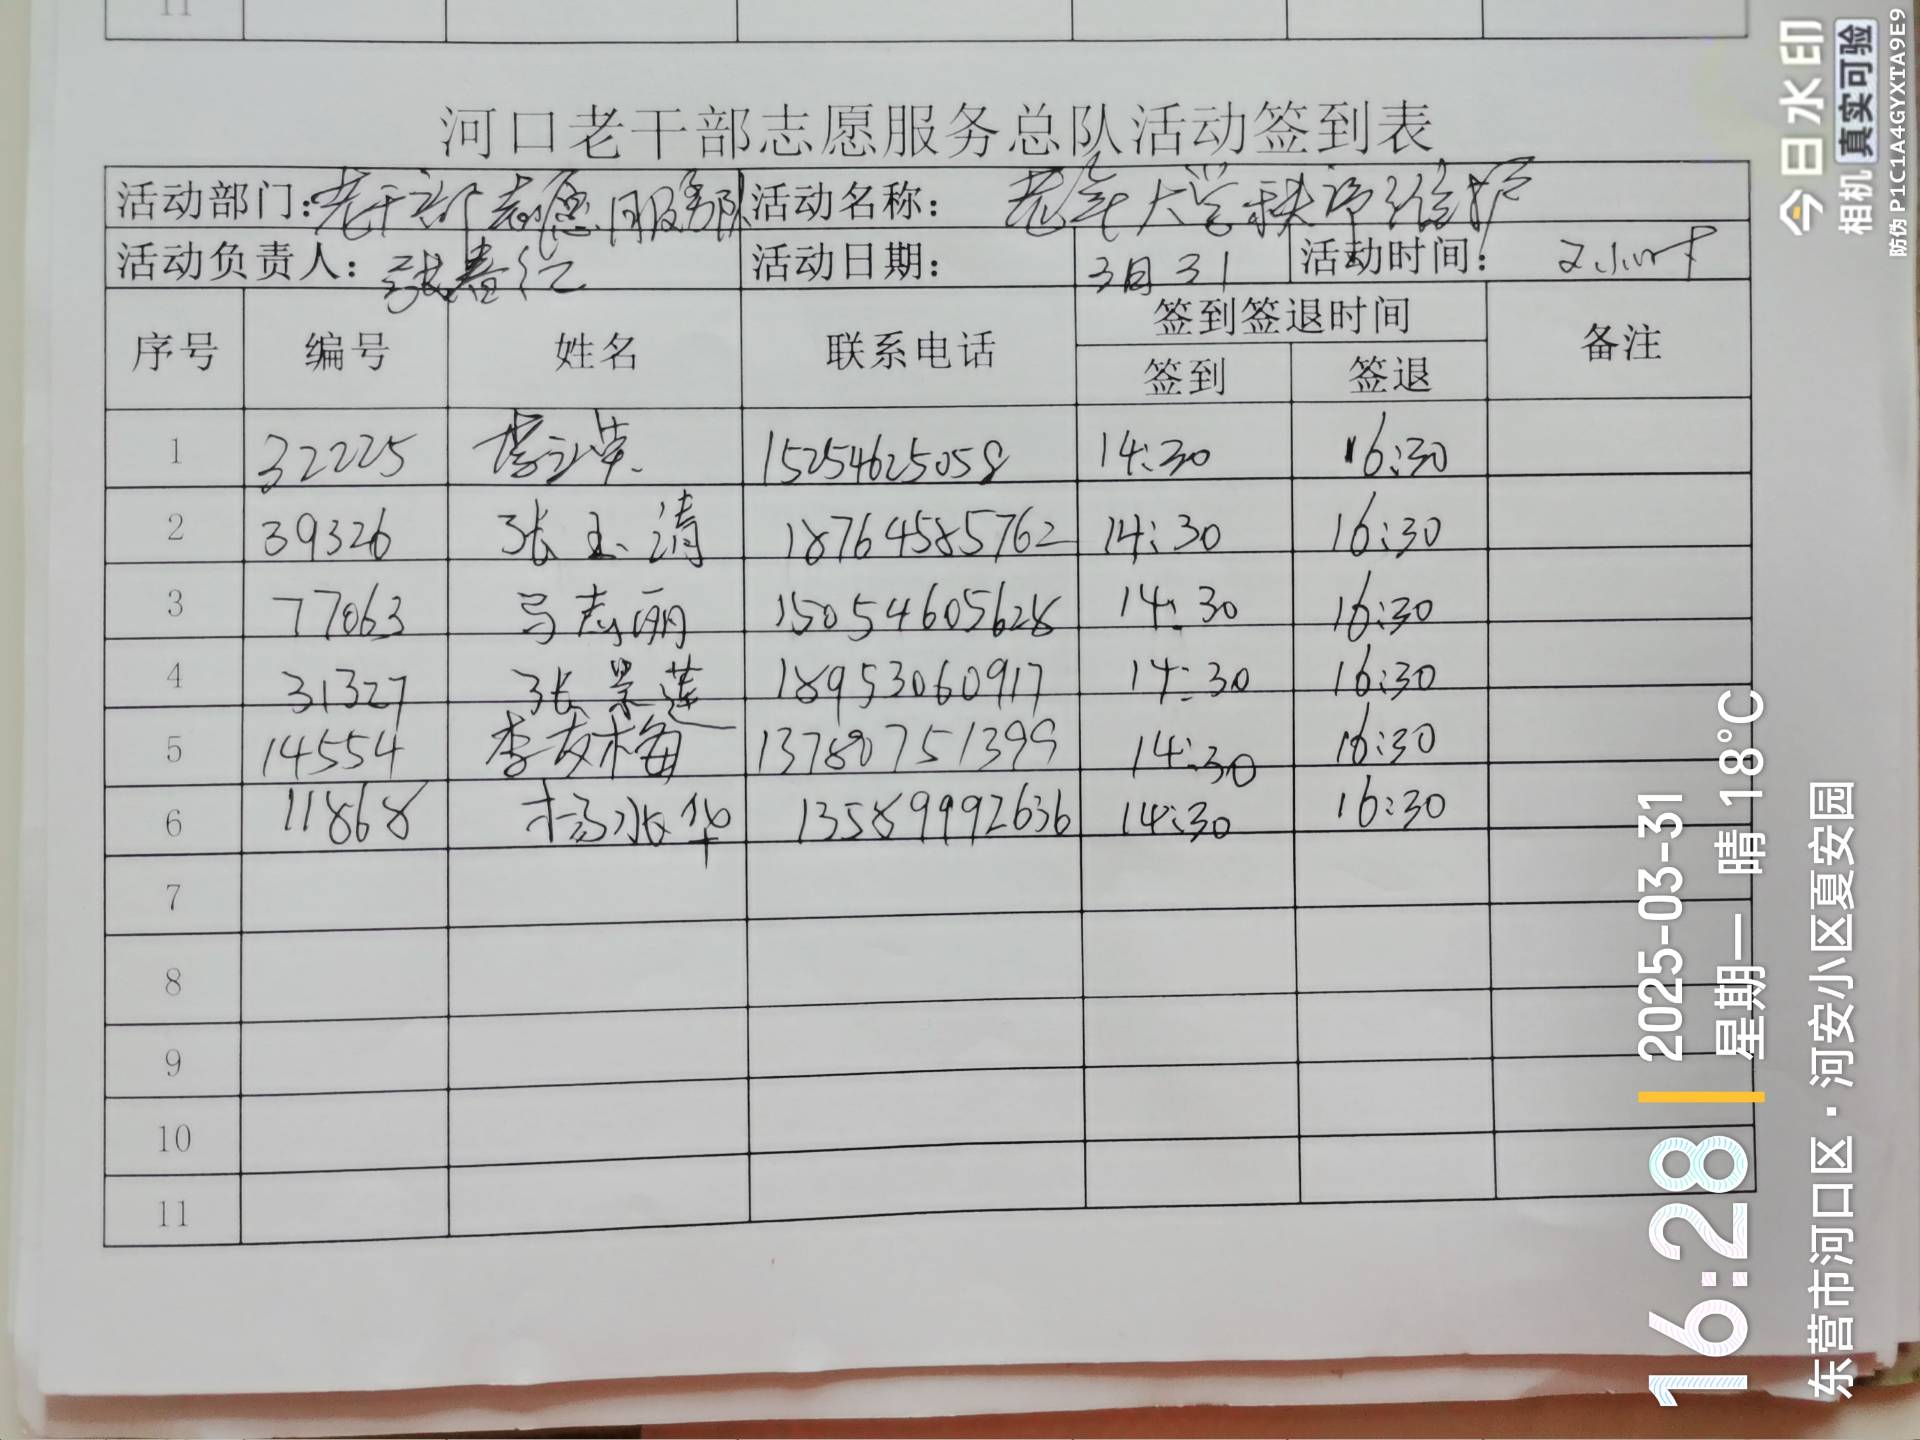 11
河口老干部志愿服务总队活动签到表
活动部门：老干部志愿服务队 活动名称：老年大学秩序维护
活动负责人：张春红 活动日期：3月31 活动时间：2小时
序号 编号 姓名 联系电话 签到签退时间 备注
签到 签退
1 32225 15254625058 14:30 16:30
2 39326 张玉清 18764585762 14:30 16:30
3 77063 马志丽 15054605628 14:30 16:30
4 31327 张景莲 18953060917 14:30 16:30
5 14554 李友梅 13780751399 14:30 16:30
6 11868 杨冰华 13589992636 14:30 16:30
7
8
9
10
11
今日水印
相机 真实可验
防伪 P1C1A4GYXTA9E9
16:28
2025-03-31
星期一 晴 18°C
东营市河口区·河安小区夏安园